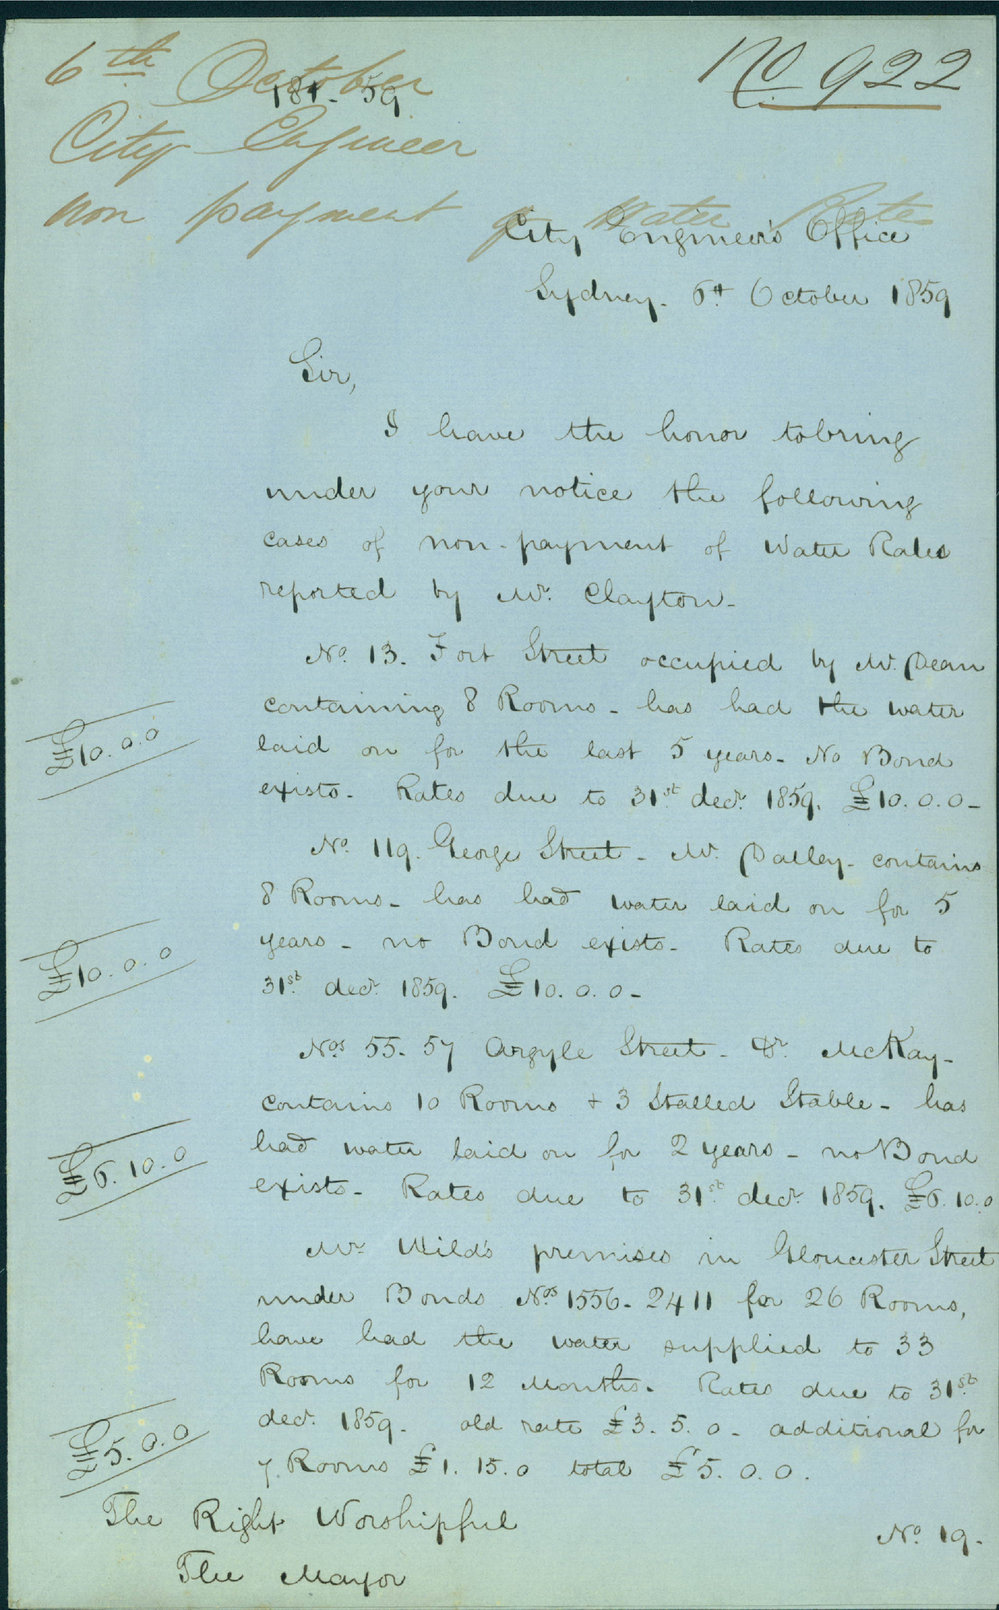 6th October
184. 59
No 922
City Engineer
non payment of Water Rates
City Engineer's Office
Sydney. 6th October 1859
Sir,
I have the honor to bring
under your notice the following
cases of non-payment of Water Rates
reported by Mr. Clayton-
No. 13. Fort Street occupied by Mr. Dean
containing 8 Rooms - has had the water
laid on for the last 5 years - No Bond
exists - Rates due to 31st decr. 1859. £10.0.0-
£10.0.0
No. 119. George Street - Mr. Dalley - contains
8 Rooms - has had water laid on for 5
years - no Bond exists - Rates due to
31st decr. 1859. £10.0.0-
£10.0.0
Nos 55. 57 Argyle Street - Dr. McKay-
contains 10 Rooms + 3 Stalled Stable - has
had water laid on for 2 years - no Bond
exists - Rates due to 31st decr. 1859. £6.10.0
£6.10.0
Mr Wild's premises in Gloucester Street
under Bonds Nos 1556 - 2411 for 26 Rooms,
have had the water supplied to 33
Rooms for 12 Months. Rates due to 31st
decr. 1859. old rate £3.5.0 - additional for
7. Rooms £1.15.0 total £5.0.0.
£5.0.0
The Right Worshipful
The Mayor
No. 19.